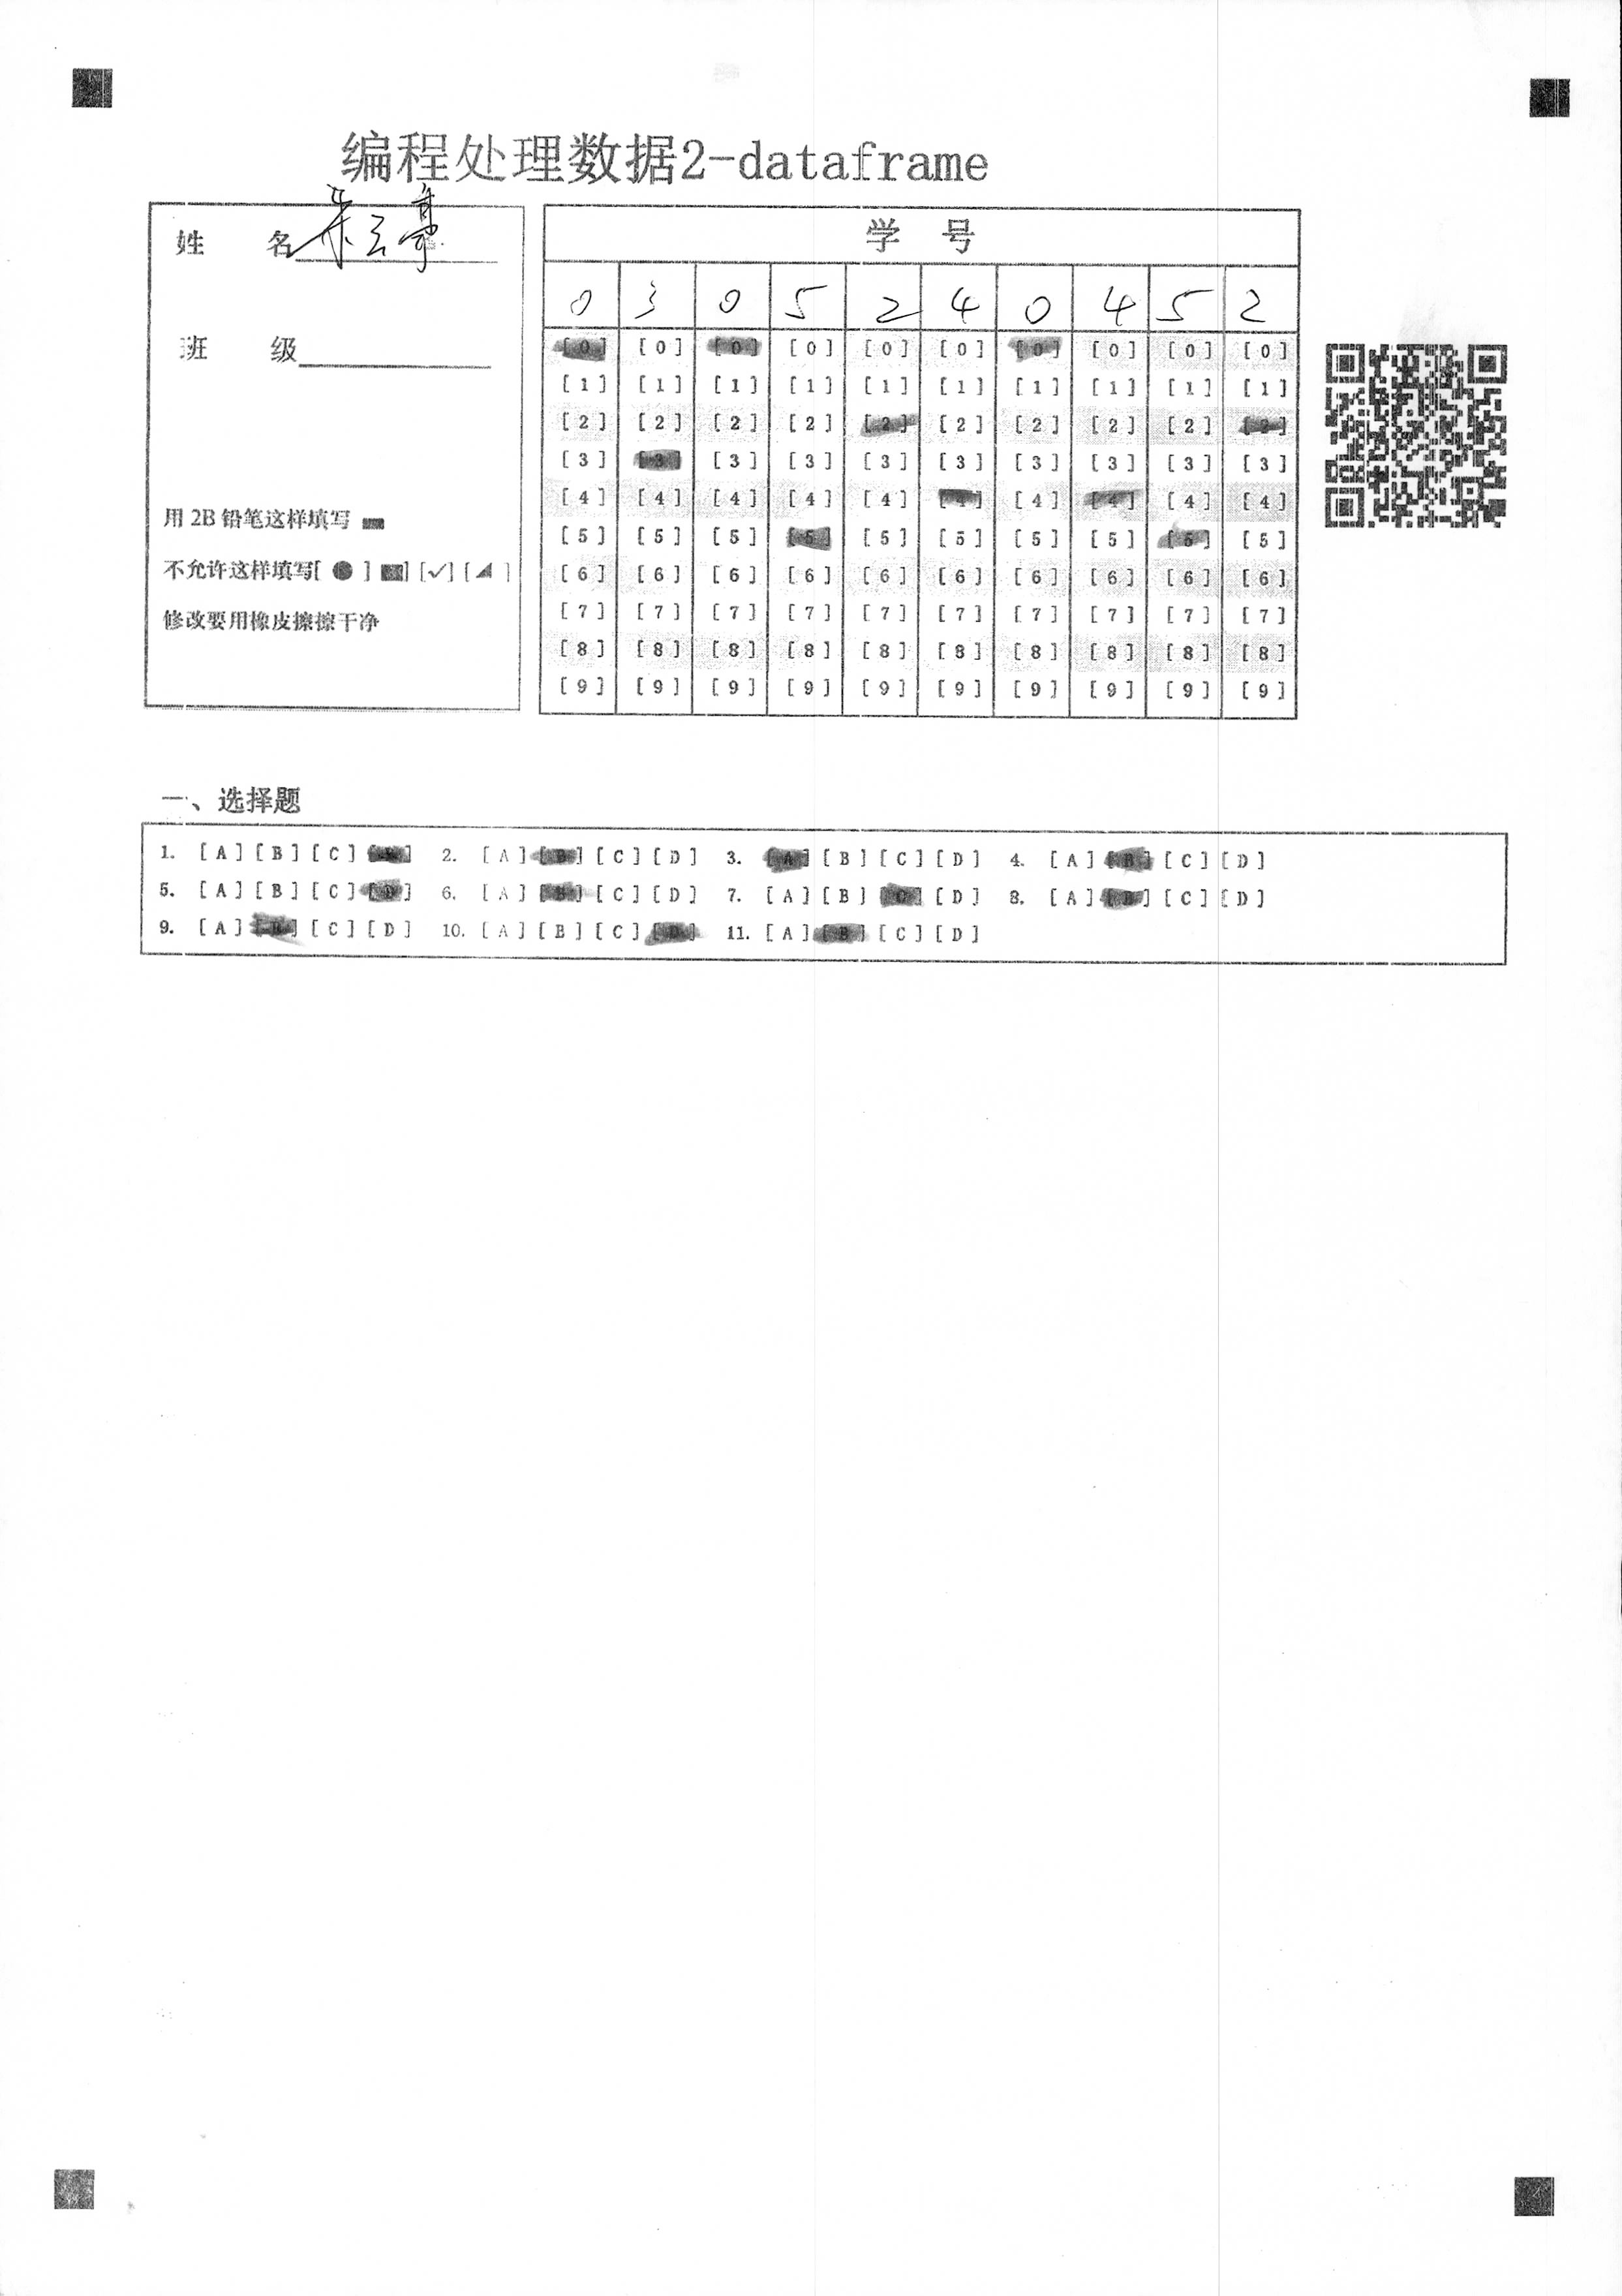 编程处理数据2-dataframe
姓 名 朱云
班 级
用 2B 铅笔这样填写
不允许这样填写[ ● ] [✓] [ ]
修改要用橡皮擦擦干净
学 号
0 3 0 5 2 4 0 4 5 2
[0] [0] [0] [0] [0] [0] [0] [0] [0] [0]
[1] [1] [1] [1] [1] [1] [1] [1] [1] [1]
[2] [2] [2] [2] [2] [2] [2] [2] [2] [2]
[3] [3] [3] [3] [3] [3] [3] [3] [3] [3]
[4] [4] [4] [4] [4] [4] [4] [4] [4] [4]
[5] [5] [5] [5] [5] [5] [5] [5] [5] [5]
[6] [6] [6] [6] [6] [6] [6] [6] [6] [6]
[7] [7] [7] [7] [7] [7] [7] [7] [7] [7]
[8] [8] [8] [8] [8] [8] [8] [8] [8] [8]
[9] [9] [9] [9] [9] [9] [9] [9] [9] [9]
一、选择题
1. [A] [B] [C] [D] 2. [A] [B] [C] [D] 3. [A] [B] [C] [D] 4. [A] [B] [C] [D]
5. [A] [B] [C] [D] 6. [A] [B] [C] [D] 7. [A] [B] [C] [D] 8. [A] [B] [C] [D]
9. [A] [B] [C] [D] 10. [A] [B] [C] [D] 11. [A] [B] [C] [D]